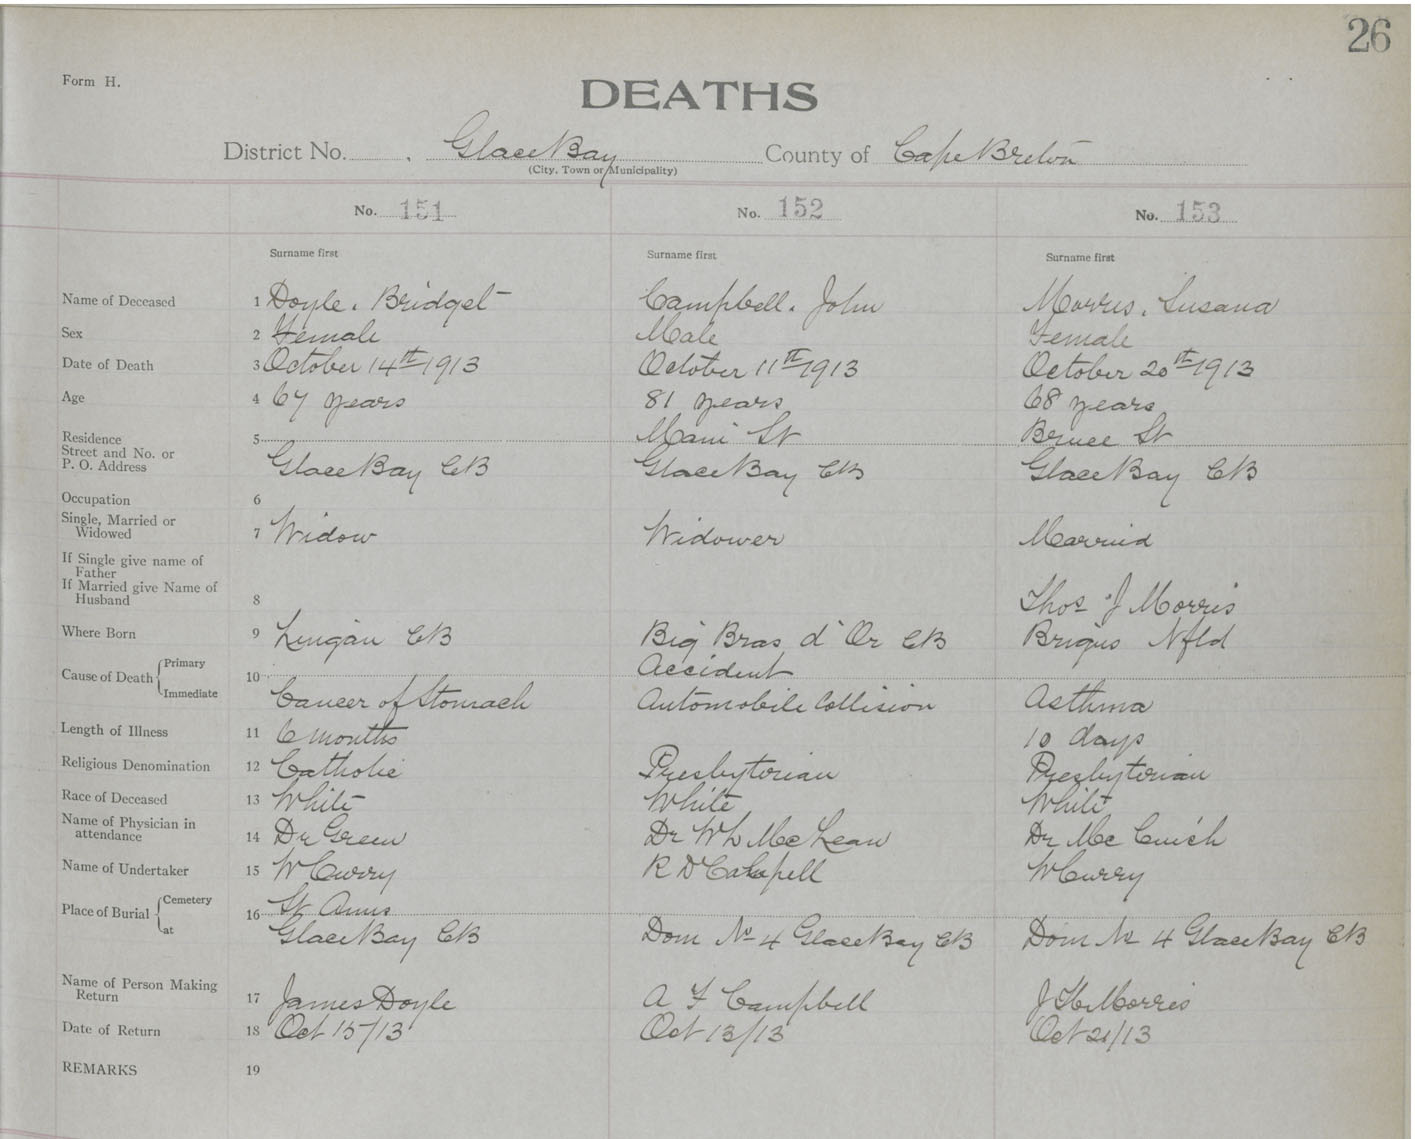 26
Form H.
DEATHS
District No. Glace Bay County of Cape Breton
(City, Town or Municipality)
No. 151 No. 152 No. 153
Surname first Surname first Surname first
Name of Deceased 1 Doyle, Bridget Campbell, John Morris, Susana
Sex 2 Female Male Female
Date of Death 3 October 14th 1913 October 11th 1913 October 20th 1913
Age 4 67 years 81 years 68 years
Residence 5 Main St Bruce St
Street and No. or
P. O. Address Glace Bay CB Glace Bay CB Glace Bay CB
Occupation 6
Single, Married or
Widowed 7 Widow Widower Married
If Single give name of
Father
If Married give Name of
Husband 8 Thos J Morris
Where Born 9 Lingan CB Big Bras d'Or CB Brigus Nfld
Cause of Death Primary 10 Accident
Immediate Cancer of Stomach Automobile Collision Asthma
Length of Illness 11 6 months 10 days
Religious Denomination 12 Catholic Presbyterian Presbyterian
Race of Deceased 13 White White White
Name of Physician in
attendance 14 Dr Green Dr McLean Dr Mc
Name of Undertaker 15 W Curry R D W Curry
Place of Burial Cemetery 16 St Anns
at Glace Bay CB Dom No 4 Glace Bay CB Dom No 4 Glace Bay CB
Name of Person Making
Return 17 James Doyle A F Campbell Morris
Date of Return 18 Oct 15/13 Oct 13/13 Oct 21/13
REMARKS 19